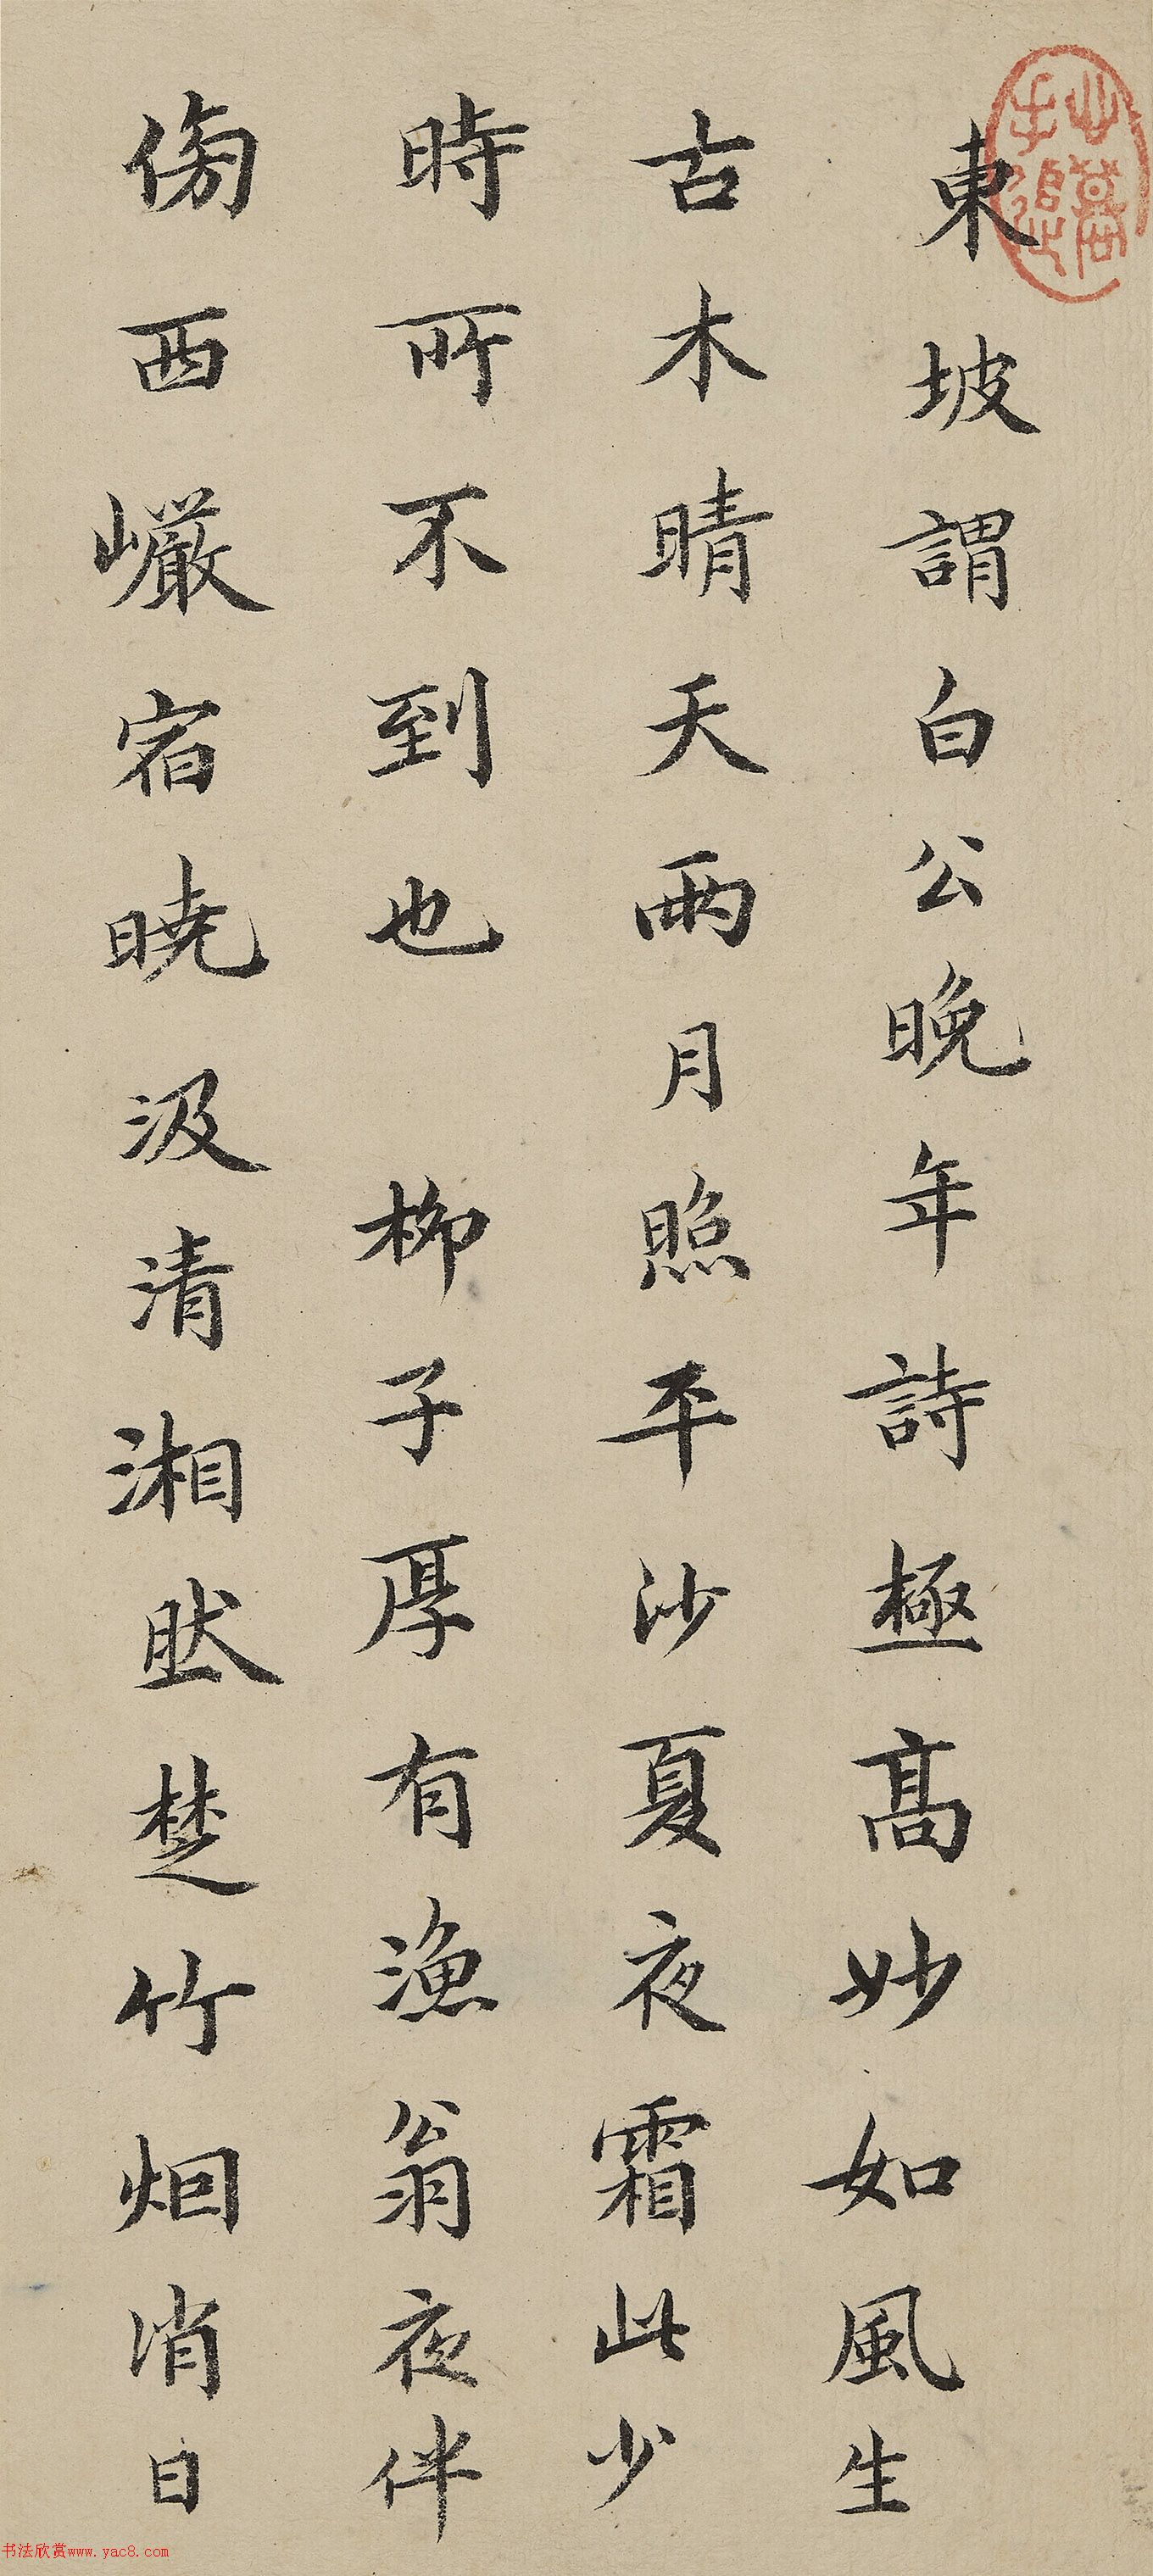 東坡謂白公晚年詩極髙妙如風生
古木晴天雨月照平沙夏夜霜此少
時所不到也　柳子厚有漁翁夜伴
傍西巗宿曉汲清湘然楚竹烟消日
书法欣赏www.yac8.com